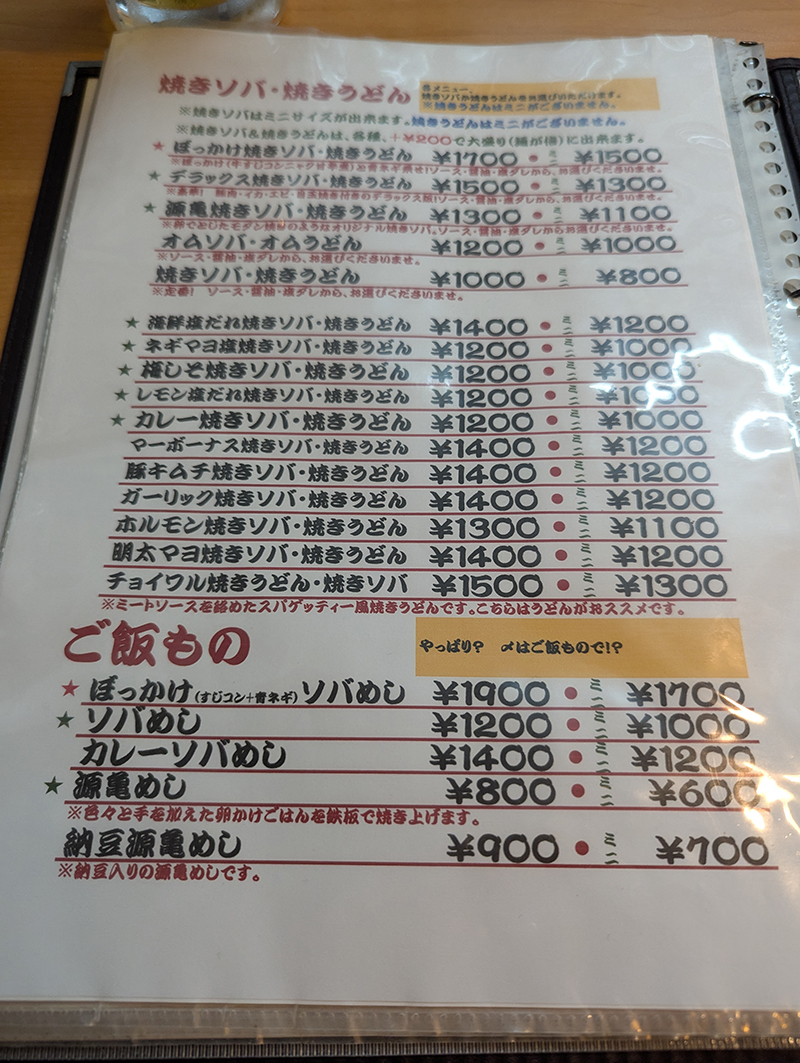 焼きソバ・焼きうどん
各メニュー、
焼きソバか焼きうどんをお選びいただけます。
※焼きうどんはミニがございません。
※焼きソバはミニサイズが出来ます。焼きうどんはミニがございません。
※焼きソバ&焼きうどんは、各種、+¥200で大盛り(麺が倍)に出来ます。
★ ぼっかけ焼きソバ・焼きうどん ¥1700 ● ミニ ¥1500
※ぼっかけ(牛すじコンニャク甘辛煮)と青ネギ乗せ!ソース・醤油・塩ダレから、お選びくださいませ。
★ デラックス焼きソバ・焼きうどん ¥1500 ● ミニ ¥1300
※豪華! 豚肉・イカ・エビ・目玉焼き付きのデラックス版!ソース・醤油・塩ダレからお選びくださいませ。
★ 源亀焼きソバ・焼きうどん ¥1300 ● ミニ ¥1100
※卵でとじたモダン焼きのようなオリジナル焼きソバ。ソース・醤油・塩ダレからお選びくださいませ。
オムソバ・オムうどん ¥1200 ● ミニ ¥1000
※ソース・醤油・塩ダレから、お選びくださいませ。
焼きソバ・焼きうどん ¥1000 ● ミニ ¥800
※定番! ソース・醤油・塩ダレから、お選びくださいませ。
★ 海鮮塩だれ焼きソバ・焼きうどん ¥1400 ● ミニ ¥1200
★ ネギマヨ塩焼きソバ・焼きうどん ¥1200 ● ミニ ¥1000
★ 梅しそ焼きソバ・焼きうどん ¥1200 ● ミニ ¥1000
★ レモン塩だれ焼きソバ・焼きうどん ¥1200 ● ミニ ¥1000
★ カレー焼きソバ・焼きうどん ¥1200 ● ミニ ¥1000
マーボーナス焼きソバ・焼きうどん ¥1400 ● ミニ ¥1200
豚キムチ焼きソバ・焼きうどん ¥1400 ● ミニ ¥1200
ガーリック焼きソバ・焼きうどん ¥1400 ● ミニ ¥1200
ホルモン焼きソバ・焼きうどん ¥1300 ● ミニ ¥1100
明太マヨ焼きソバ・焼きうどん ¥1400 ● ミニ ¥1200
チョイワル焼きうどん・焼きソバ ¥1500 ● ミニ ¥1300
※ミートソースを絡めたスパゲッティー風焼きうどんです。こちらはうどんがおススメです。
ご飯もの
やっぱり? 〆はご飯もので!?
★ ぼっかけ(すじコン+青ネギ)ソバめし ¥1900 ● ミニ ¥1700
★ ソバめし ¥1200 ● ミニ ¥1000
カレーソバめし ¥1400 ● ミニ ¥1200
★ 源亀めし ¥800 ● ミニ ¥600
※色々と手を加えた卵かけごはんを鉄板で焼き上げます。
納豆源亀めし ¥900 ● ミニ ¥700
※納豆入りの源亀めしです。